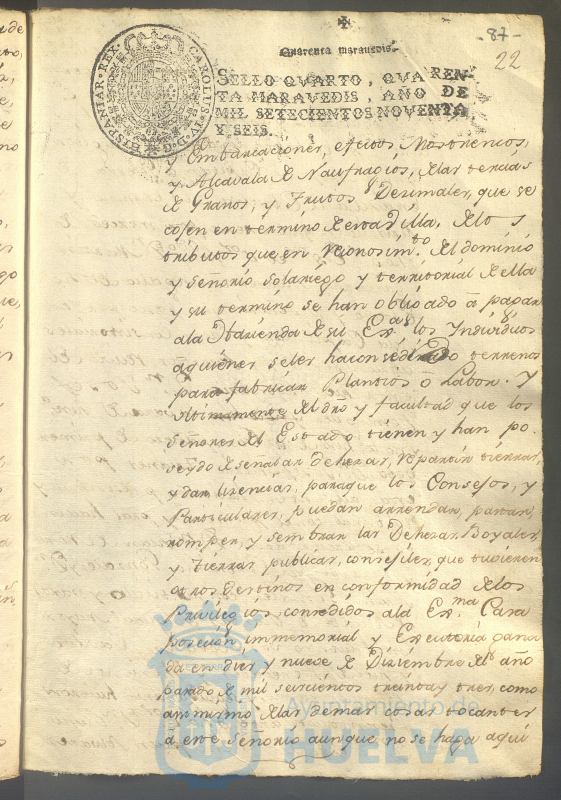 -87-
22
Quarenta maravedis.
SELLO QVARTO, QVAREN-
TA MARAVEDIS, AÑO DE
MIL SETECIENTOS NOVENTA
Y SEIS.
CAROLUS IV D G HISPANIAR REX
y Embarcaciones, efectos Mostrencos,
y Alcavala de Naufragios, de las tercias
de Granos, y Frutos Dezimales, que se
cojen en termino de esta Villa, de los
tributos que en reconosim.to del dominio
y señorio solariego y territorial de ella
y su termino se han obligado a pagar
ala Hazienda de su Ex.a los Individuos
aquienes seles ha consedido terrenos
para fabricar Plantios o Labor. Y
ultimamente del dro y facultad que los
Señores del Estado tienen y han po-
seydo de señalar Dehezas, repartir tierras,
y dar licencias, paraque los Consejos, y
Particulares, puedan arrendar, pastar,
romper, y sembrar las Dehezas Boyales,
y tierras publicas, consejiles, que tuvieren
otros destinos en conformidad de los
Privilegios consedidos ala Ex.ma Casa
posecion immemorial y Executoria gana
da en diez y nueve de Diziembre del año
pasado de mil seiscientos treinta y tres, como
asi mismo de las demas cosas tocantes
a este Señorio aunque no se haga aqui
Ayuntamiento de
HUELVA